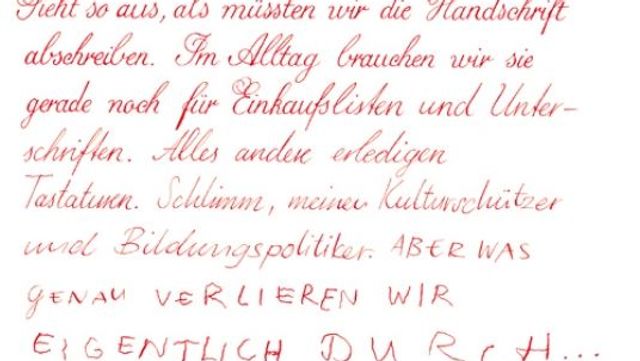 Sieht so aus, als müssten wir die Handschrift
abschreiben. Im Alltag brauchen wir sie
gerade noch für Einkaufslisten und Unter-
schriften. Alles andere erledigen
Tastaturen. Schlimm, meinen Kulturschützer
und Bildungspolitiker. ABER WAS
GENAU VERLIEREN WIR
EIGENTLICH DURCH...